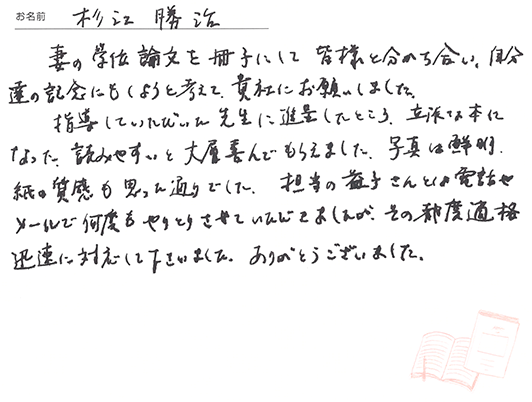 お名前 杉江 勝治
妻の学位論文を冊子にして 皆様と分かち合い、自分
達の記念にもしようと考えて、貴社にお願いしました。
指導していただいた先生に進呈したところ、立派な本に
なった、読みやすいと大層喜んでもらえました。写真は鮮明、
紙の質感も思った通りでした。担当の益子さんとは電話や
メールで何度もやりとりさせていただきましたが、その都度適格
迅速に対応して下さいました。ありがとうございました。